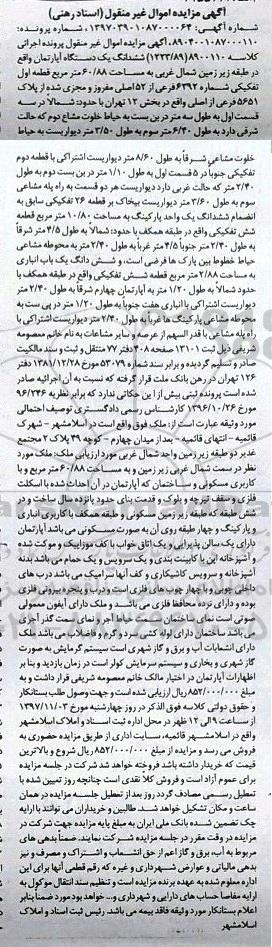 آگهی مزایده اموال غیر منقول (اسناد رهنی)
شماره آگهی: ۱۳۹۷۰۳۹۰۱۰۸۷۰۰۰۰۶۴ شماره پرونده:
۸۹۰۴۰۰۱۰۸۷۰۰۰۱۱۰ آگهی مزایده اموال غیر منقول پرونده اجرائی
کلاسه ۸۹۰۰۱۱۰ (۱۲۲۳/۸۹) ششدانگ یک دستگاه آپارتمان واقع
در طبقه زیر زمین شمال غربی به مساحت ۶۰/۸۸ متر مربع قطعه اول
تفکیکی شماره ۶۳۹۲ فرعی از ۵۲ اصلی مفروز و مجزی شده از پلاک
۵۶۵۱ فرعی از اصلی واقع در بخش ۱۲ تهران با حدود: شمالا در سه
قسمت اول به طول سه متر در بن بست حیاط خلوت مشاع دوم که حالت
شرقی دارد به طول ۶/۴۰ متر سوم به طول ۳/۵۰ متر دیواریست به حیاط
خلوت مشاعی شرقاً به طول ۸/۶۰ متر دیواریست اشتراکی با قطعه دوم
تفکیکی جنوباً در ۵ قسمت اول به طول ۱/۱۰ متر در بن بست دوم به طول
۲/۴۰ متر که حالت غربی دارد دیواریست هر دو قسمت به راه پله مشاعی
سوم به طول ۳/۶۰ متر دیواریست بیخاک بر قطعه ۲۶ تفکیکی سابق به
انضمام ششدانگ یک واحد پارکینگ به مساحت ۱۰/۸۰ متر مربع قطعه
شش تفکیکی واقع در طبقه همکف با حدود: شمالاً به طول ۴/۵ متر شرقاً
به طول ۲/۴۰ متر جنوباً ۴/۵ متر غرباً به طول ۲/۴۰ متر به محوطه مشاعی
حیاط خطوط بین پارک ها فرضی است، و شش دانگ یک باب انباری
به مساحت ۲/۸۸ متر مربع قطعه شش تفکیکی واقع در طبقه همکف با
حدود شمالاً به طول ۱/۲۰ به آپارتمان چهارم شرقاً به طول ۲/۴۰ متر
دیواریست اشتراکی با انباری هفت جنوباً به طول ۱/۲۰ متر در پی ست به
محوطه مشاعی پارکینگ ها غرباً به طول ۲/۴۰ متر دیواریست اشتراکی با
راه پله مشاعی با قدر السهم از عرصه و سایر مشاعات به نام خانم معصومه
شریفی ذیل ثبت ۱۳۱۰۱ صفحه ۴۰۸ دفتر ۷۷ منتقل و ثبت و سند مالکیت
صادر و تسلیم گردیده و برابر سند شماره ۵۳۰۷۹ مورخ ۱۳۸۱/۱۲/۲۸ دفتر
۱۲۶ تهران در رهن بانک ملت قرار گرفته که نسبت به آن اجرائیه صادر
شده است پرونده ثبتی بیش از این حکائتی ندارد که برابر نظریه ۹۶/۲۴۶
مورخ ۱۳۹۶/۱۰/۲۶ کارشناس رسمی دادگستری توصیف اجمالی
مورد وثیقه عبارت است از: ملک فوق واقع است در اسلامشهر - شهرک
قائمیه - انتهای قائمیه - بعد از میدان چهارم - کوچه ۴۹ پلاک ۲ مجتمع
غدیر دو طبقه زیر زمین واحد شمال غربی مورد ارزیابی ملک: ملک مورد
نظر در سمت شمال غربی زیر زمین و به مساحت ۶۰/۸۸ متر مربع و با
کاربری مسکونی و ساختمان که آپارتمان در آن احداث شده با اسکلت
فلزی و سقف تیرچه و بلوک و قدمت بنای حدود پانزده سال ساخت و در
شش طبقه که طبقه زیر زمین مسکونی و طبقه همکف با کاربری انباری
و پارکینگ و چهار طبقه روی آن به صورت مسکونی می باشد آپارتمان
دارای یک سالن پذیرایی و یک اتاق خواب با کف موزاییک و موکت شده
و آشپزخانه اپن با کابینت بندی و یک سرویس و یک حمام می باشد بدنه
آشپزخانه و سرویس کاشیکاری و کف آنها سرامیک می باشد درب های
داخلی چوبی با چهار چوب های فلزی است و درب و پنجره بیرونی فلزی
بوده و دارای نرده محافظ فلزی می باشد، و ملک دارای آیفون معمولی
صوتی است نمای ساختمان به سمت معبر آجر و نمای سمت گذر آجری
می باشد ساختمان دارای لوله کشی سرد و گرم و فاضلاب می باشد ملک
دارای انشعابات آب و برق و گاز شهری است سیستم گرمایش به صورت
گاز شهری و بخاری و سیستم سرمایش کولر است در زمان بازدید و بنا بر
اظهارات آپارتمان در اختیار مالک خانم معصومه شریفی قرار داشت و به
مبلغ ۸۵۲/۰۰۰/۰۰۰ ریال ارزیابی شده است و جهت وصول طلب بستانکار
و حقوق دولتی کلاسه فوق الذکر در روز چهارشنبه مورخ ۱۳۹۷/۱۱/۰۳
از ساعت ۹ الی ۱۲ ظهر در محل اداره ثبت اسناد و املاک اسلامشهر
واقع در اسلامشهر قائمیه، سایت اداری از طریق مزایده حضوری به
فروش می رسد و مزایده از مبلغ ۸۵۲/۰۰۰/۰۰۰ ریال شروع و بالاترین
قیمت که خریدار داشته باشد فروخته خواهد شد شرکت در جلسه مزایده
برای عموم آزاد است و فروش کلا نقدی است چنانچه روز تعیین شده با
تعطیل رسمی مصادف گردد روز بعد از تعطیل جلسه مزایده در همان
ساعت و مکان تشکیل خواهد شد. طالبین و خریداران می توانند با ارایه
چک تضمین شده بانک ملی ایران به مبلغ پایه مزایده جهت شرکت در
مزایده در وقت مقرر در جلسه مزایده شرکت نمایند. ضمناً بدهی های
مربوط به آب، برق و گاز اعم از حق انشعاب و اشتراک و مصرف و نیز
بدهی مالیاتی و عوارض شهرداری و غیره که رقم قطعی آنها برای این
اداره معلوم شده به عهده برنده مزایده است و تنظیم سند انتقال موکول به
ارایه مفاصا حساب های دارایی و شهرداری و... خواهد بود مورد ضمناً بنابر
اعلام بستانکار مورد وثیقه فاقد بیمه می باشد. رئیس ثبت اسناد و املاک
اسلامشهر